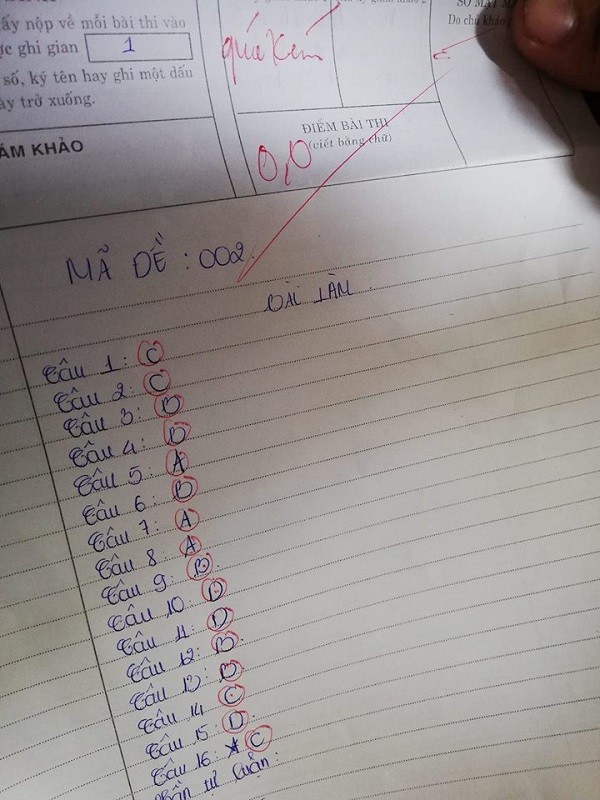 ấy nộp về mỗi bài thi vào
ợc ghi gian 1
số, ký tên hay ghi một dấu
ày trở xuống.
ÁM KHẢO
quá kém
SỐ MẬT MÃ
Do chủ khảo
ĐIỂM BÀI THI
(viết bằng chữ)
0,0
MÃ ĐỀ : 002.
BÀI LÀM.
Câu 1: C
Câu 2: C
Câu 3: D
Câu 4: D
Câu 5: A
Câu 6: B
Câu 7: A
Câu 8: A
Câu 9: B
Câu 10: D
Câu 11: D
Câu 12: B
Câu 13: D
Câu 14 C
Câu 15 D.
Câu 16 C
Phần tự luận: